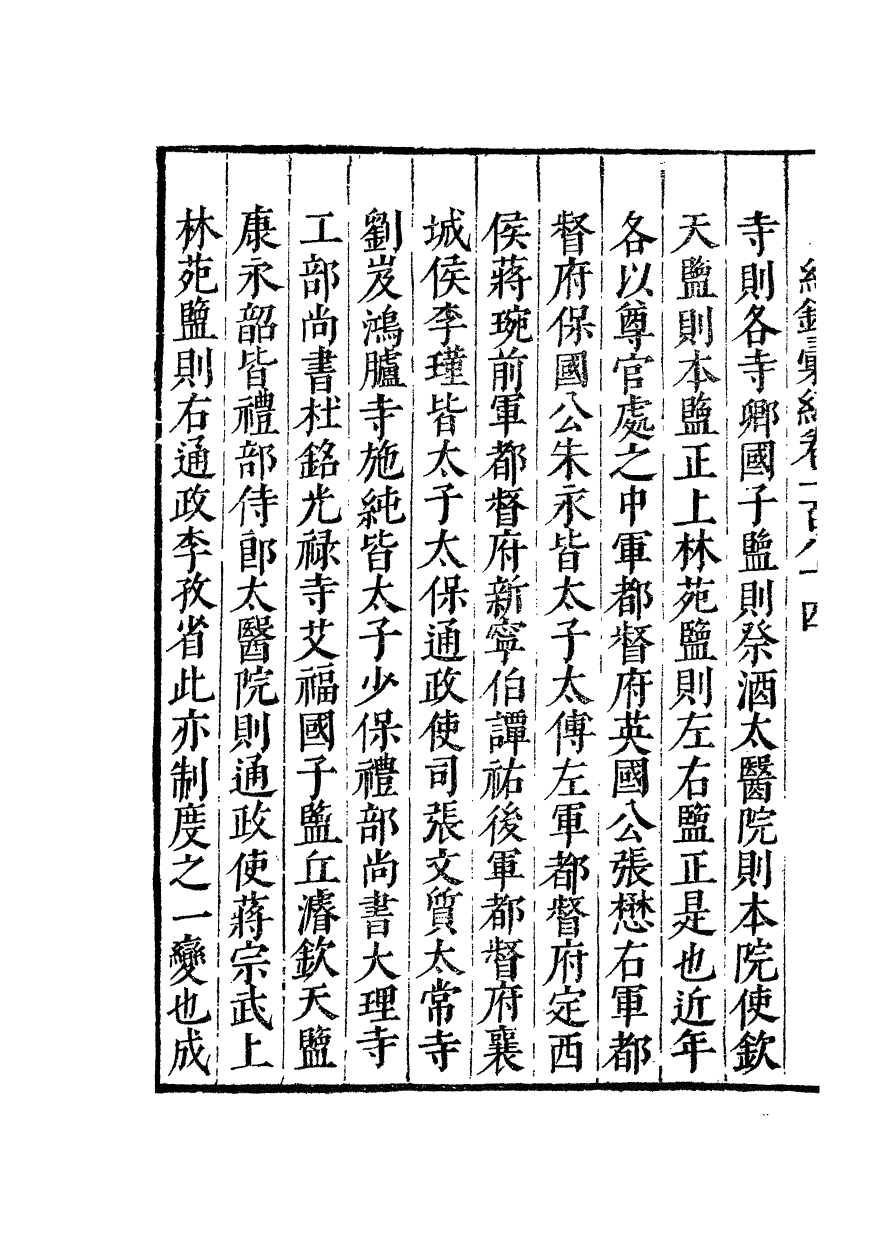 紀錄彙編卷一百八十四
寺則各寺卿國子監則祭酒太醫院則本院使欽
天監則本監正上林苑監則左右監正是也近年
各以尊官處之中軍都督府英國公張懋右軍都
督府保國公朱永皆太子太傅左軍都督府定西
侯蔣琬前軍都督府新寧伯譚祐後軍都督府襄
城侯李瑾皆太子太保通政使司張文質太常寺
劉岌鴻臚寺施純皆太子少保禮部尚書大理寺
工部尚書杜銘光祿寺艾福國子監丘濬欽天監
康永韶皆禮部侍郎太醫院則通政使蔣宗武上
林苑監則右通政李孜省此亦制度之一變也成